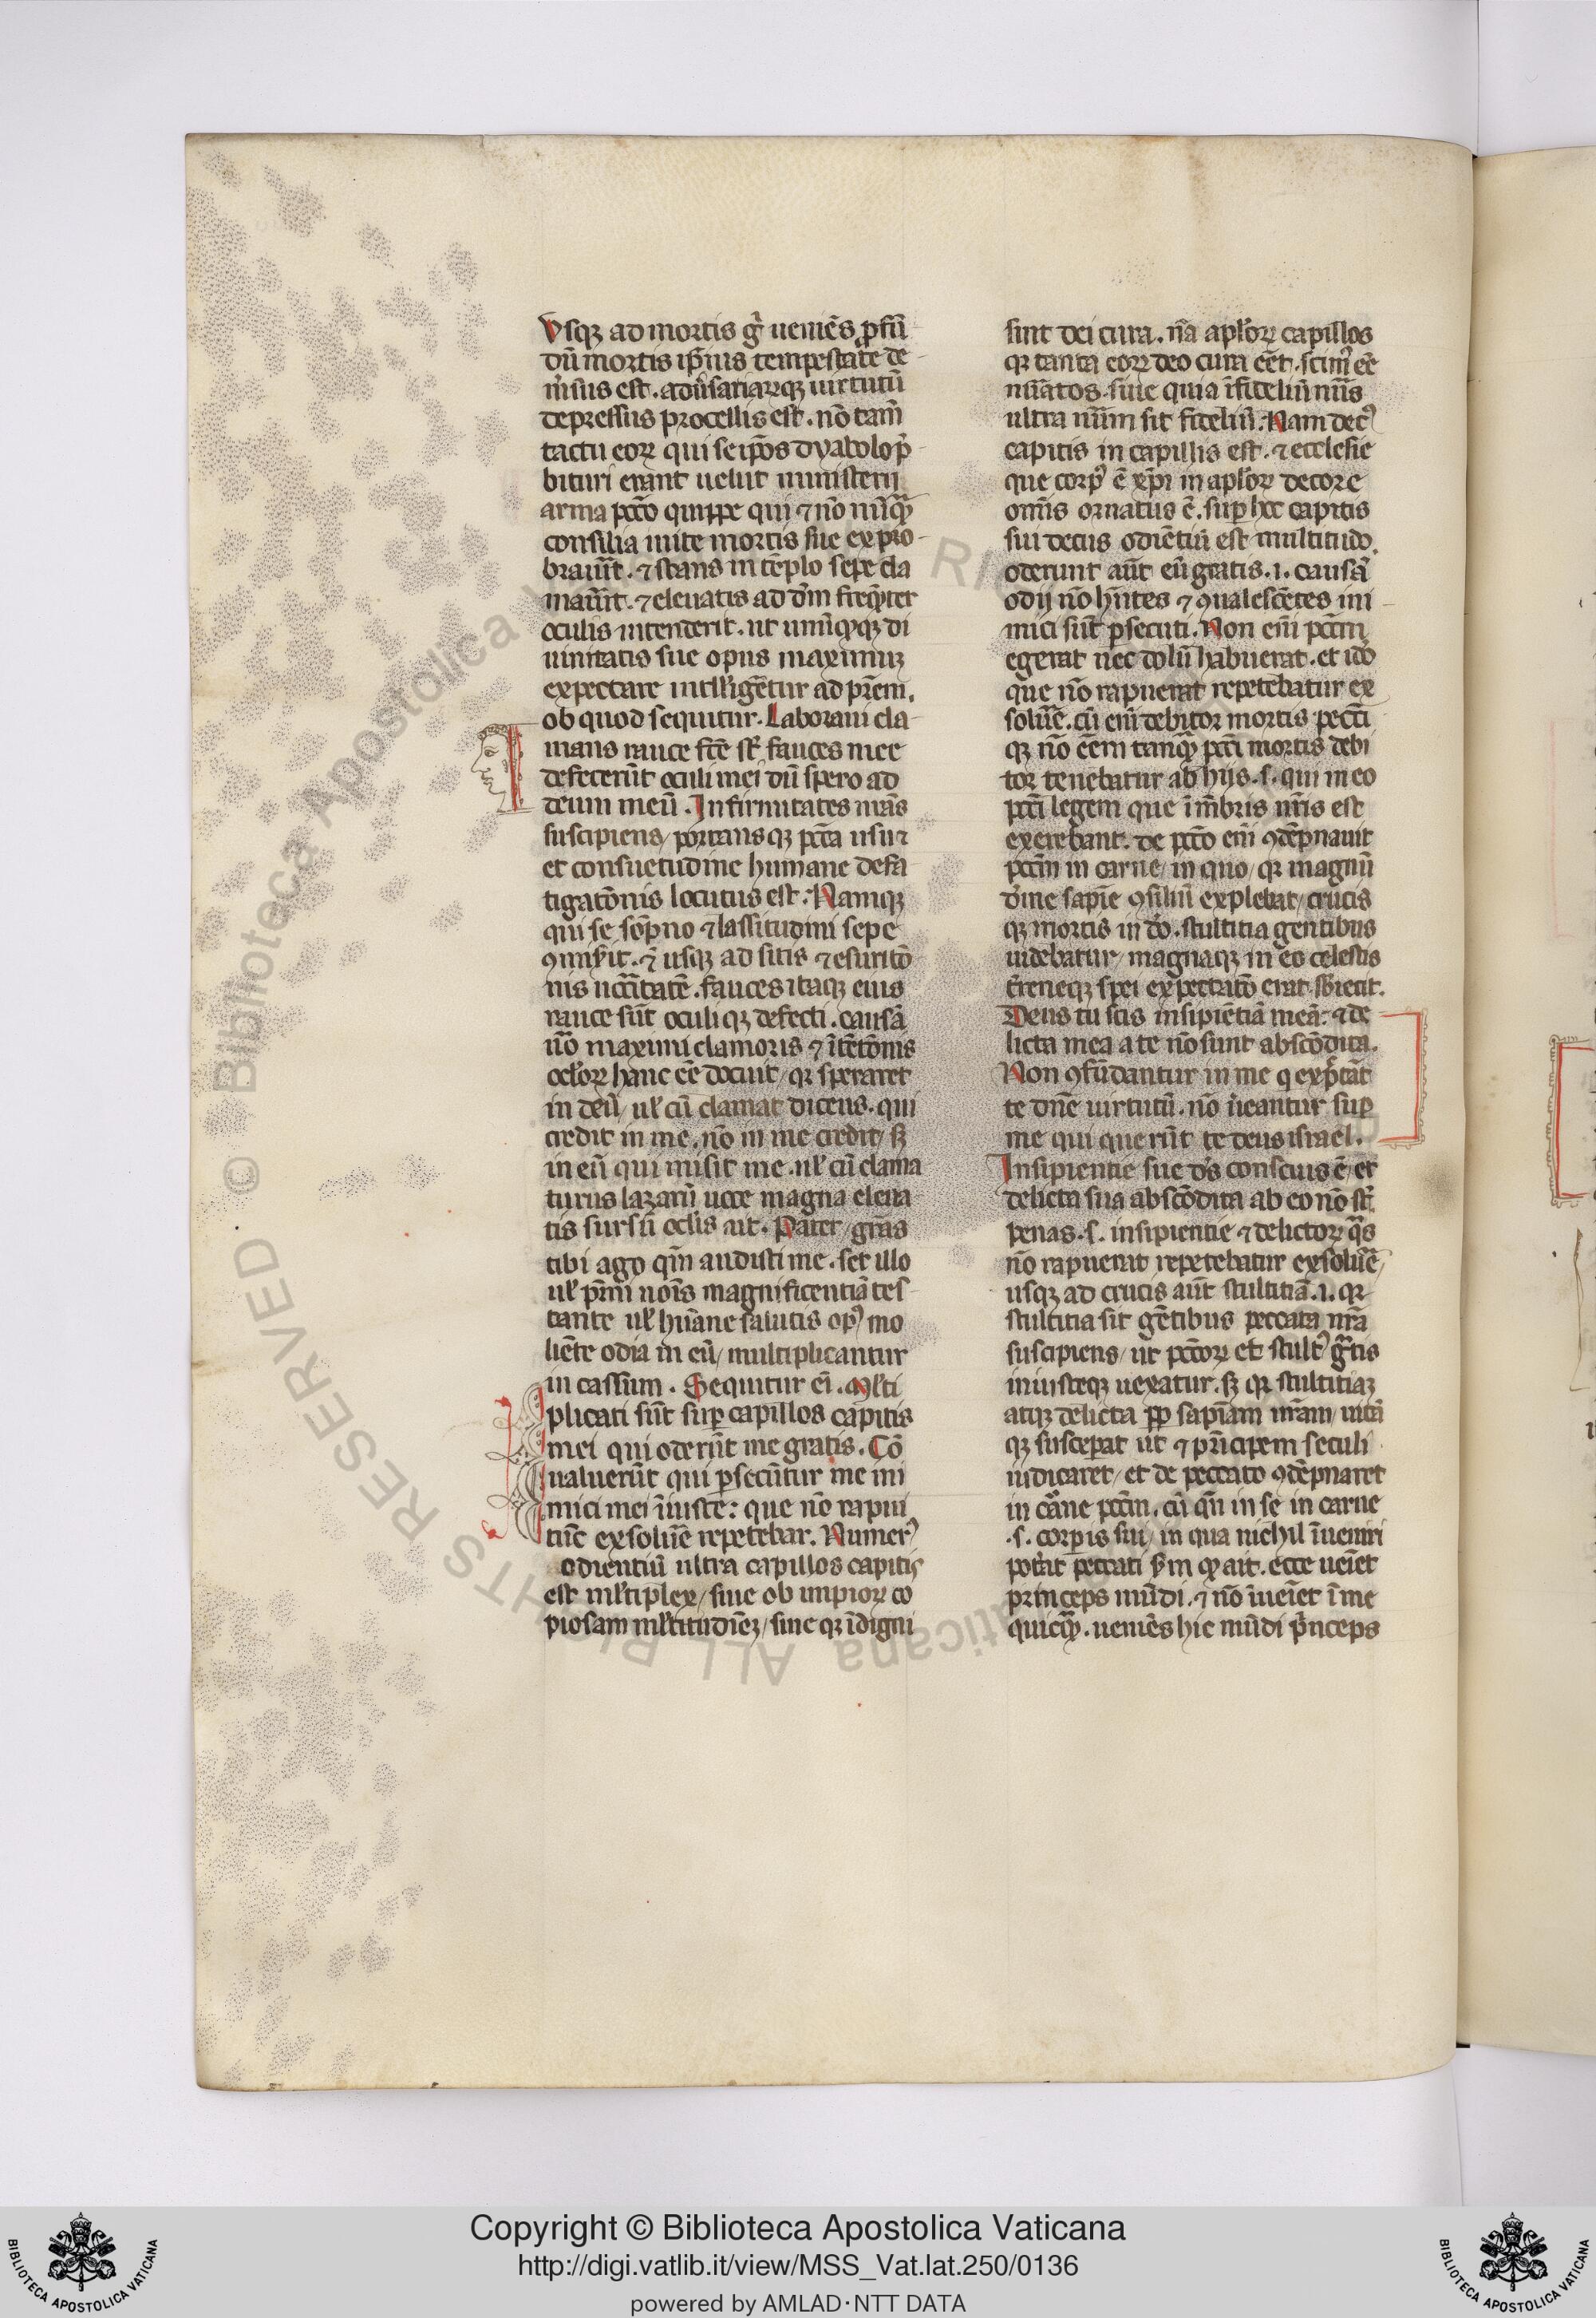 Vsqꝫ ad mortis gͦ ueniēs ꝓfū
dū mortis ip̄ius tempestate de
m̄sus est. adūsariarꝝqꝫ uirtutū
depressus procellis est. nō tam̄
tactu eoꝝ qui se ip̄os dyabolo p̄
bituri erant uelut ministerii
arma pctō quippe qui ⁊ nō nūqͣꝫ
consilia uite mortis sue expro
brauūt. ⁊ stans in tēplo sepe cla
mauūt. ⁊ eleuatis ad dm̄ freqn̄ter
oculis intenderit. ut unūqꝫqꝫ di
uinitatis sue opus maximuꝫ
expectare intelligētur ad prēm.
ob quod sequitur. Laboraui cla
mans rauce fcē st̄ fauces mee
defecerūt oculi mei dū spero ad
deum meū. Infirmitates nr̄as
suscipiens/ portansqꝫ pctā usu ⁊
et consuetudine humane defa
tigatōnis locutus est. Namqꝫ
qui se sōpno ⁊ lassitudini sepe
ꝯmis̄it. ⁊ usqꝫ ad sitis ⁊ esuritō
nis nccītatē. fauces itaqꝫ eius
rauce sūt oculiqꝫ defecti. causā
uō maximi clamoris ⁊ ītētōnis
ocl̓oꝝ hanc eē docuit/ qꝛ speraret
in deū/ ul̓ cū clamat dicens. qui
credit in me. nō in me credit/ sꝫ
in eū qui misit me. ul̓ cū clama
turus lazarū uoce magna eleua
tis sursū oclis ait. Pater/ grās
tibi ago qm̄ audisti me. set illo
ul̓ pr̄mi noīs magnificentiā tes
tante ul̓ hūane salutis opꝰ mo
liēte odia in eū/ multiplicantur
in cassum. Sequitur eī. Ml̓ti
plicati sūt suꝑ capillos capitis
mei qui oderūt me gratis. Cō
ualuerūt qui ꝑsecūtur me ini
mici mei īiuste: que nō rapui
tūc exsoluē repetebar. Numerꝰ
odientiū ultra capillos capitis
est ml̓tiplex/ siue ob impioꝝ co
piosam ml̓titudīeꝫ/ siue qꝛ īdigni
sint dei cura. nā apl̓oꝝ capillos
qꝛ tanta eoꝝ deo cura eēt. scimꝰ eē
nūatos. siue quia īfideliū nūus
ultra nūum sit fideliū. Nam decꝰ
capitis in capillis est. ⁊ ecclesie
que corpꝰ ē xp̄i in apl̓oꝝ decore
om̄is ornatus ē. suꝑ hoc capitis
sui decus odiētiū est multitudo.
oderunt aūt eū gratis. .i. causā
odij nō hn̄tes ⁊ ꝯualescētes ini
mici sūt ꝑsecuti. Non enī pctm̄
egerat nec dolū habuerat. et ido
que nō rapuerat repetebatur ex
soluē. cū enī debitor mortis pecti
qꝫ nō eēm tanqͣꝫ pcti mortis debi
tor tenebatur ab hijs. .s. qui in eo
pcti legem que ī mēbris nr̄is est
exerebant. de pctō enī ꝯdēpnauit
pctm̄ in carne/ in quo/ qꝛ magnū
diuine sapīe ꝯsiliū explebat/ crucis
qꝫ mortis in dō. stultitia gentibus
uidebatur/ magnaqꝫ in eo celestis
et̄rneqꝫ spei expectatō erat. sb̄iecit.
Deus tu scis insipiētiā meā: ⁊ de
licta mea a te nō sunt abscōdita.
Non ꝯfūdantur in me q̄ exp̄ctāt
te dn̄e uirtutū. nō ūeantur suꝑ
me qui querūt te deus israel.
Insipientie sue ds̄ conscius ē/ et
delicta sua abscōdita ab eo nō st̄.
penas. .s. insipientie ⁊ delictoꝝ qͣs
nō rapuerat repetebatur exsoluē/
usqꝫ ad crucis aūt stultitiā. .i. qꝛ
stultitia sit gētibus peccata nr̄a
suscipiens/ ut pctōꝝ et stultꝰ grātis
iniusteqꝫ uexatur. sꝫ qꝛ stultitiaꝫ
atqꝫ delicta ꝓp sapīam nr̄am/ uitā
qꝫ susceperat ut ⁊ pn̄cipem seculi
iudicaret/ et de peccato ꝯdēpnaret
in carne pctm̄. cū qn̄ in se in carne
.s. corporis sui/ in qua nichil īueniri
potāt peccati sm̄ qꝫ ait. ecce ueīet
princeps mūdi. ⁊ nō īueīet ī me
quicqͣꝫ. ueniēs hic mūdi pͥnceps
Copyright © Biblioteca Apostolica Vaticana
http://digi.vatlib.it/view/MSS_Vat.lat.250/0136
powered by AMLAD·NTT DATA
BIBLIOTECA APOSTOLICA VATICANA
BIBLIOTECA APOSTOLICA VATICANA